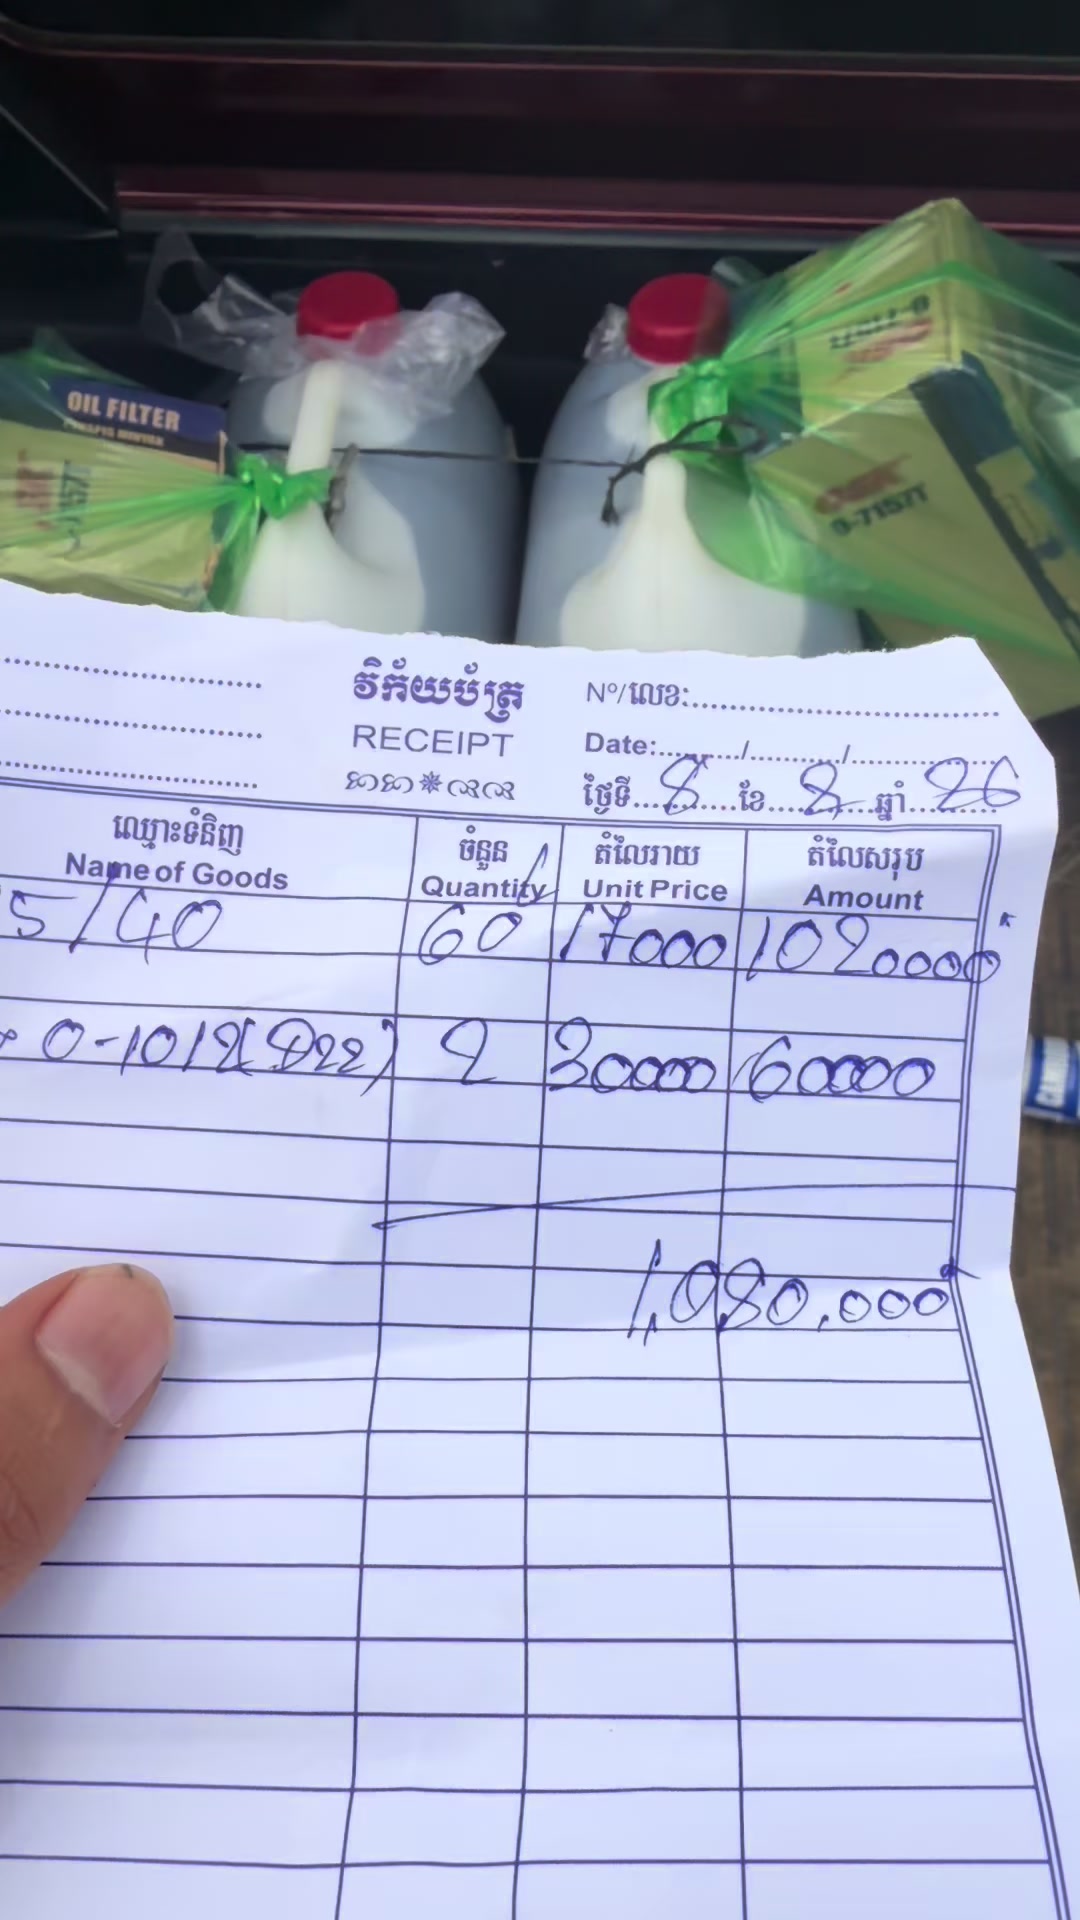 OIL FILTER
O-7157T
វិក័យប័ត្រ
Nº/លេខ:
RECEIPT
Date: / /
ថ្ងៃទី 8 ខែ 2 ឆ្នាំ 26
ឈ្មោះទំនិញ ចំនួន តំលៃរាយ តំលៃសរុប
Name of Goods Quantity Unit Price Amount
5/40 60 17000 1020000
O-1012(D22) 2 30000 60000
1,080.000